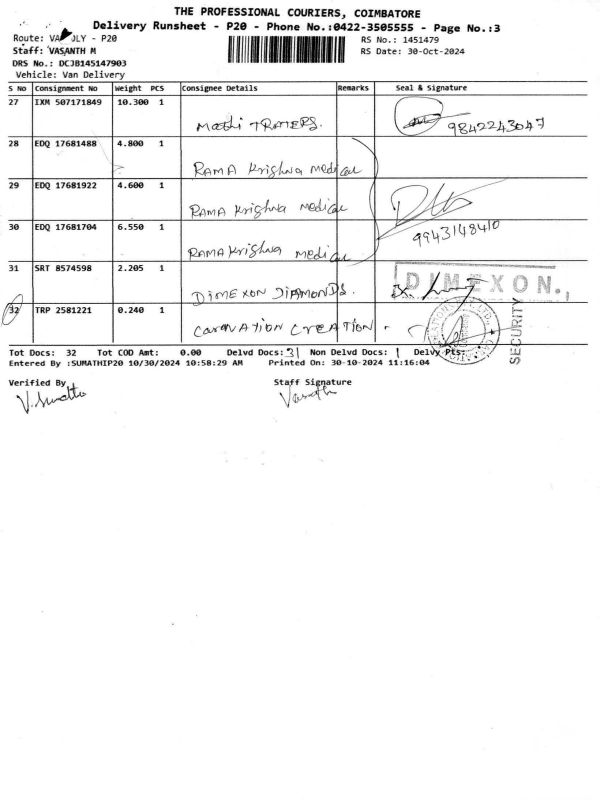 THE PROFESSIONAL COURIERS, COIMBATORE
Delivery Runsheet - P20 - Phone No.:0422-3505555 - Page No.:3
Route: - P20 RS No.: 1451479
Staff: VASANTH M RS Date: 30-Oct-2024
DRS No.: DCJB145147903
Vehicle: Van Delivery
S No Consignment No Weight PCS Consignee Details Remarks Seal & Signature
27 IXM 507171849 10.300 1
Mathi TRATERS. 9842243047
28 EDQ 17681488 4.800 1
RAMA Krishna Medical
29 EDQ 17681922 4.600 1
RAMA Krishna Medical
30 EDQ 17681704 6.550 1 9943148410
RAMA Krishna Medical
31 SRT 8574598 2.205 1
DIMEXON DIAMONDS. DIMEXON.
32 TRP 2581221 0.240 1
CARONATION CREATION SECURITY
Tot Docs: 32 Tot COD Amt: 0.00 Delvd Docs: 31 Non Delvd Docs: 1 Delvy Pts:
Entered By :SUMATHIP20 10/30/2024 10:58:29 AM Printed On: 30-10-2024 11:16:04
Verified By Staff Signature
V. Sumathi Vasanth